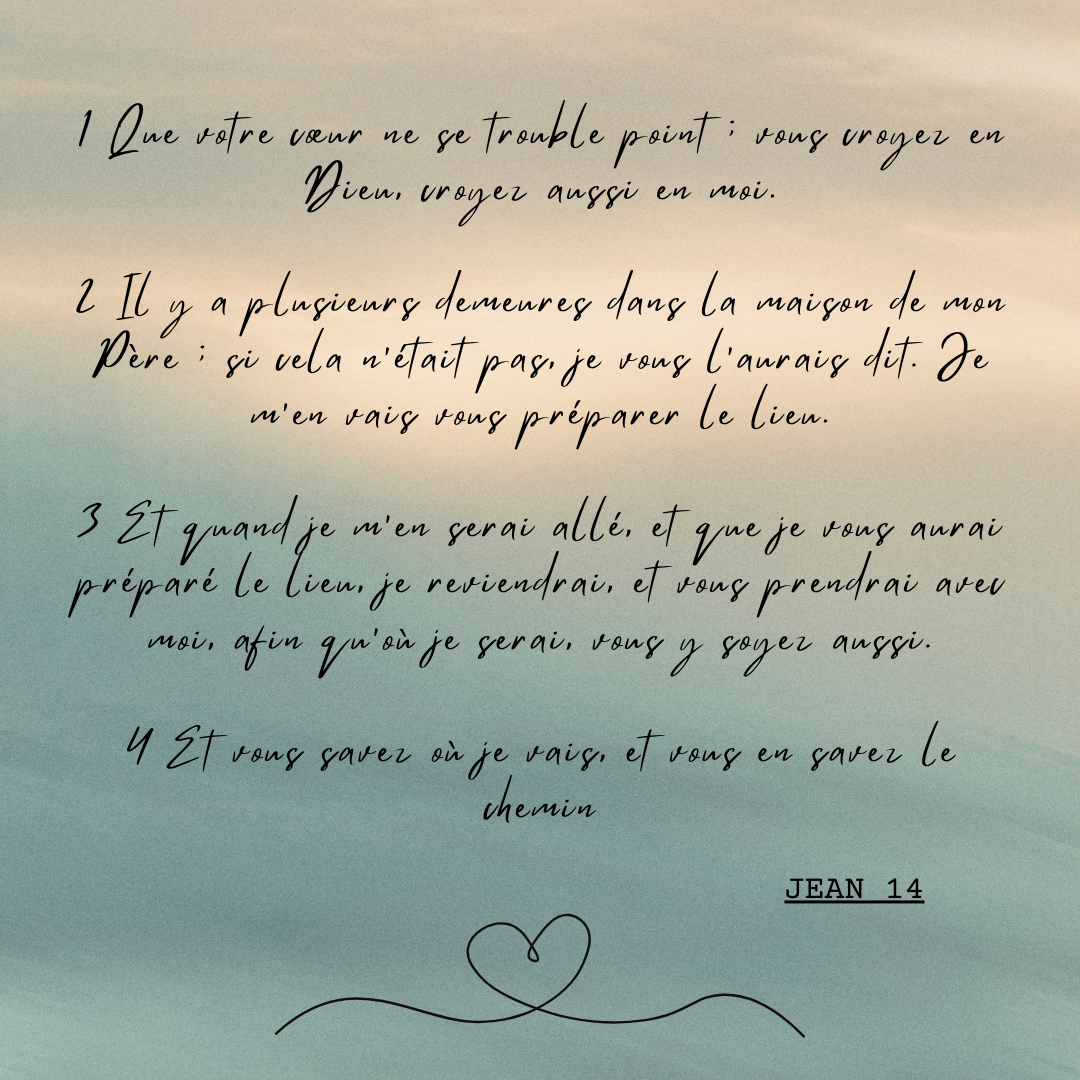 1 Que votre cœur ne se trouble point ; vous croyez en
Dieu, croyez aussi en moi.
2 Il y a plusieurs demeures dans la maison de mon
Père ; si cela n'était pas, je vous l'aurais dit. Je
m'en vais vous préparer le lieu.
3 Et quand je m'en serai allé, et que je vous aurai
préparé le lieu, je reviendrai, et vous prendrai avec
moi, afin qu'où je serai, vous y soyez aussi.
4 Et vous savez où je vais, et vous en savez le
chemin
JEAN 14